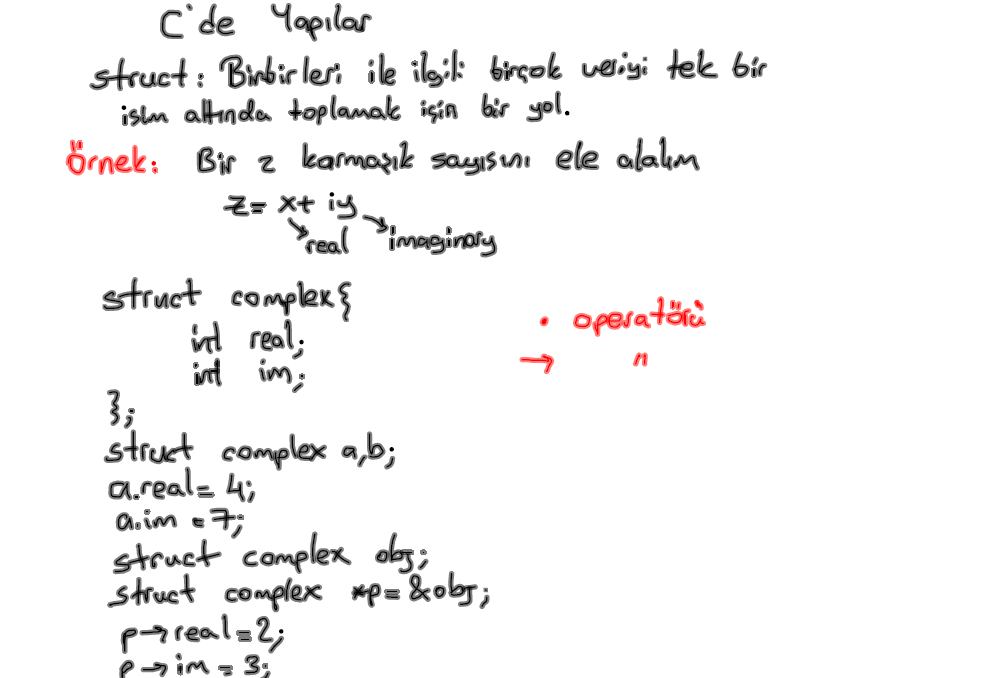 C'de Yapılar
struct: Birbirleri ile ilgili birçok veriyi tek bir
isim altında toplamak için bir yol.
Örnek: Bir z karmaşık sayısını ele alalım
z= x+ iy
real imaginary
struct complex{
int real;
int im;
};
struct complex a,b;
a.real= 4;
a.im =7;
struct complex obj;
struct complex *p= &obj;
p→real=2;
p→im = 3;
. operatörü
→ "